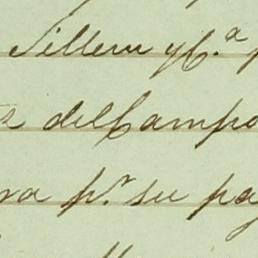 Sillem y C.ª p
z del Campo
ra p.r su pag